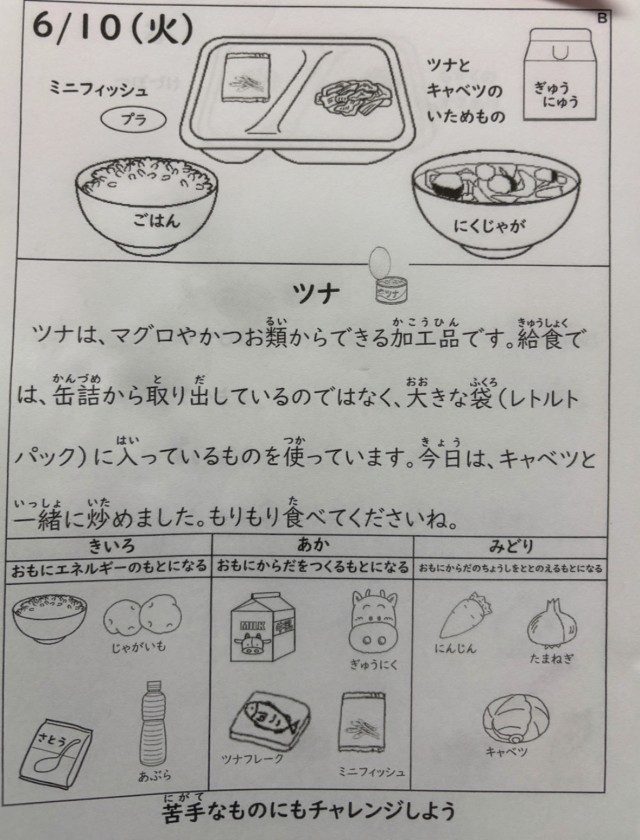 B
6/10(火)
ミニフィッシュ
プラ
ツナと
キャベツの
いためもの
ぎゅう
にゅう
ごはん
にくじゃが
ツナ
ツナ
ツナは、マグロやかつお類からできる加工品です。給食で
は、缶詰から取り出しているのではなく、大きな袋(レトルト
パック)に入っているものを使っています。今日は、キャベツと
一緒に炒めました。もりもり食べてくださいね。
きいろ
おもにエネルギーのもとになる
じゃがいも
さとう
あぶら
あか
おもにからだをつくるもとになる
MILK
ぎゅうにく
ツナフレーク
ミニフィッシュ
みどり
おもにからだのちょうしをととのえるもとになる
にんじん
たまねぎ
キャベツ
苦手なものにもチャレンジしよう